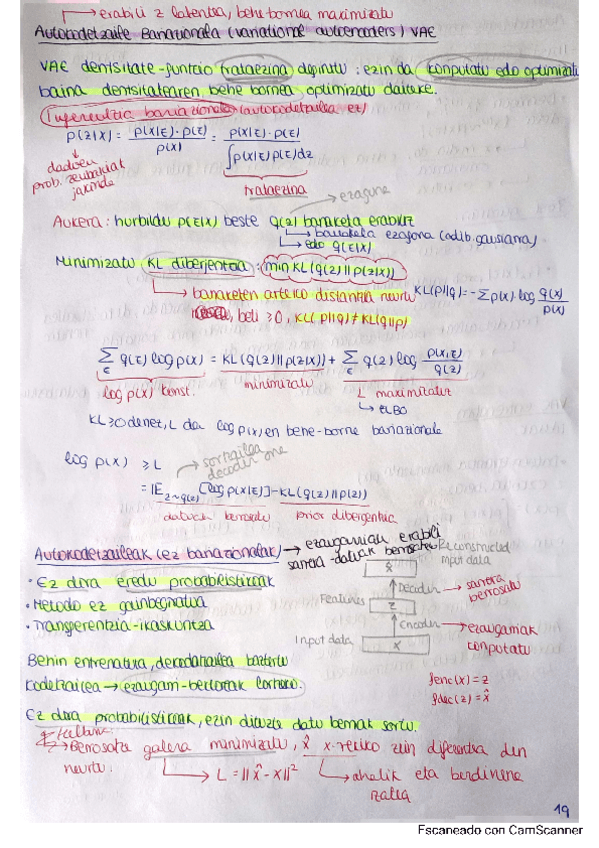 → erabili z latentea, behe bornea maximizatu
Autokodetzaile Bariazionala (variational autoencoders) VAE
VAE dentsitate-funtzio trataezina definitu: ezin da konputatu edo optimizatu
baina dentsitatearen behe bornea optimizatu daiteke.
Inferentzia bariazionala (autokodetzailea ez)
p(z|x) = p(x|z)·p(z) / p(x) = p(x|z)·p(z) / ∫p(x|z)p(z)dz
prob.
jakinda
trataezina
→ ezaguna
Aukera: hurbildu p(z|x) beste q(z) banaketa erabiliz
→ banaketa ezaguna (adib. gausiarra)
→ edo q(z|x)
Minimizatu KL dibergentzia: min KL(q(z)||p(z|x))
→ banaketen arteko distantzia neurtu
KL(p||q) = -Σp(x)·log q(x)/p(x)
beti ≥0, KL(p||q)≠KL(q||p)
Σ q(z) log p(x) = KL(q(z)||p(z|x)) + Σ q(z) log p(x,z)/q(z)
z z
log p(x) konst. minimizatu L maximizatu
→ ELBO
KL≥0 denez, L da log p(x)en behe-borne bariazionala
→ sortzailea
decoder
log p(x) ≥ L
= IE z~q(z) [log p(x|z)] - KL(q(z)||p(z))
datuen berreraketa prior dibergentzia
Autokodetzaileak (ez bariazionalak) → ezaugarriak erabili
sarrera-datuak
Reconstructed
input data
x̂
• Ez dira eredu probabilistikoak
↑ Decoder → sarrera
Features z
• Metodo ez gainbegiratua
↑ Encoder → ezaugarriak
konputatu
• Transferentzia-ikaskuntza
Input data x
Behin entrenatuta, dekodetzailea baztertu
Kodetzailea → ezaugarri-bektoreak lortzeko.
fenc(x) = z
fdec(z) = x̂
Ez dira probabilistikoak, ezin dituzte datu berriak sortu.
galera minimizatu, x̂ x-rekiko zein diferentea den
neurtu.
→ L = ||x̂ - x||²
→ ahalik eta berdinena
izatea
19
Escaneado con CamScanner